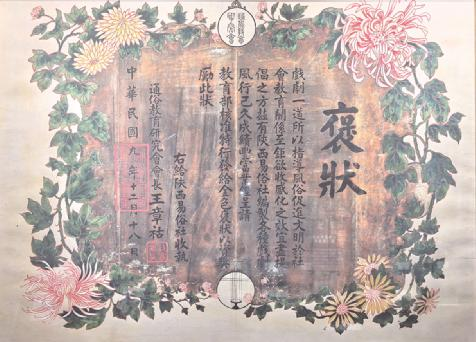 褒狀
戲劇一道所以指導風俗促進文明於社
會教育關係至鉅欲收感化之效宜盡提
倡之方茲有陝西易俗社編製各種戲劇
風行已久成績豐富業經呈請
教育部核准特行發給金色褒狀以資獎
勵此狀
右給陝西易俗社收執
通俗教育研究會會長王章祜
中華民國九年十二月十八日